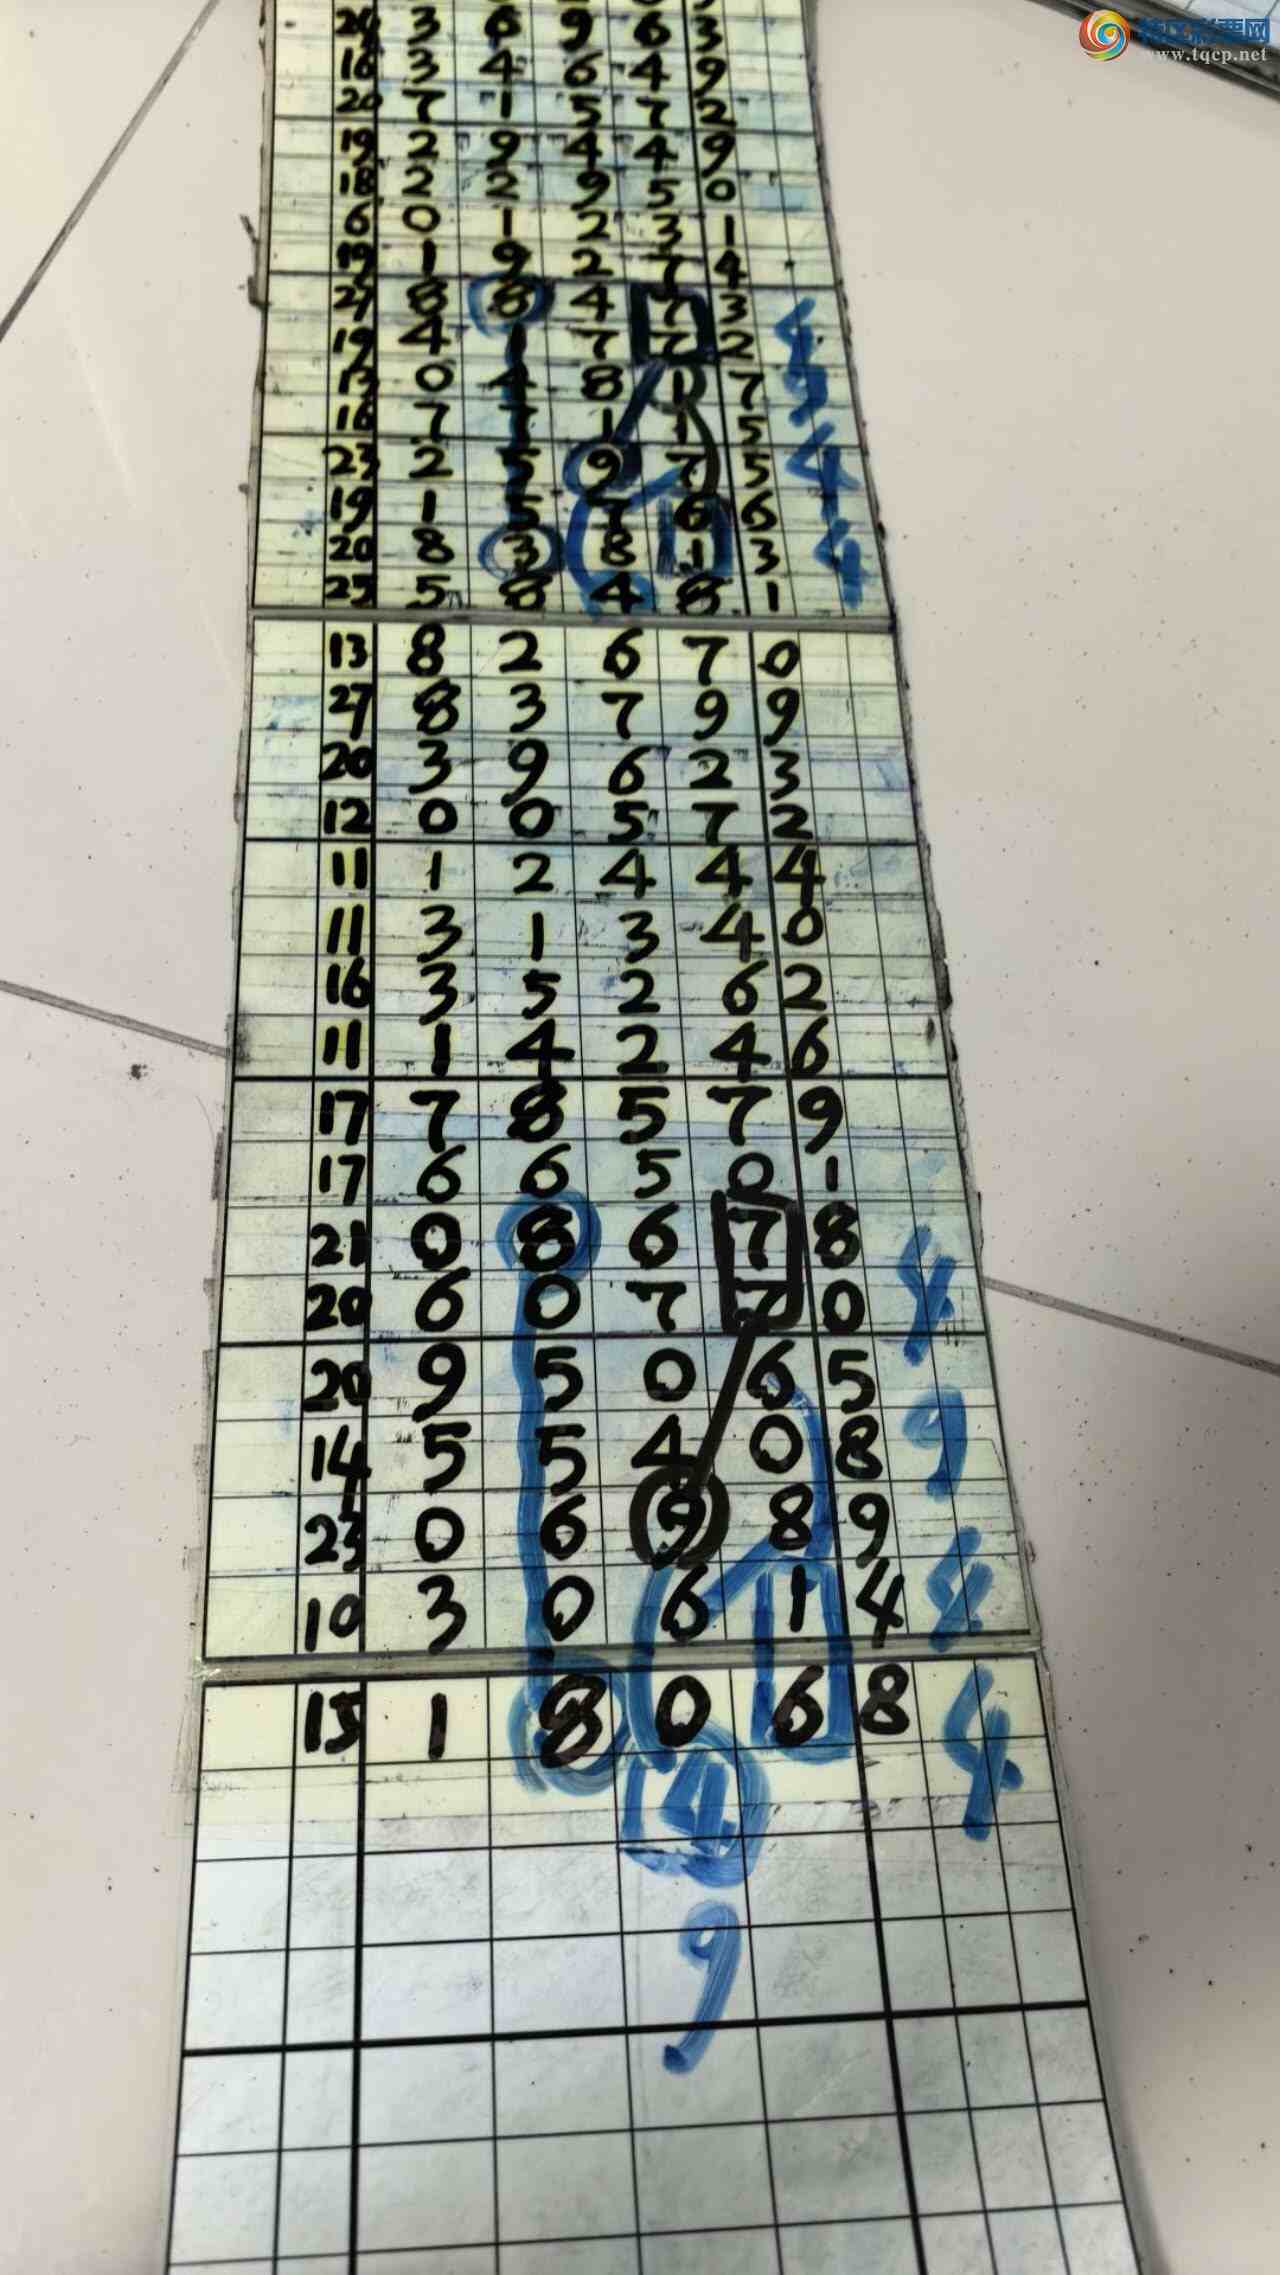 特区彩票网
www.tqcp.net
20 3 6 9 6 3
16 3 4 6 4 9
20 7 1 5 7 2
19 2 9 4 4 9
18 2 2 9 5 0
6 0 1 2 3 1
19 1 9 2 7 4
27 8 8 4 7 3 4
19 4 1 7 7 2
13 0 4 8 1 7 9
16 7 7 1 1 5
23 2 5 9 7 5 4
19 1 5 7 6 6
20 8 3 8 1 3 4
25 5 8 4 8 1
13 8 2 6 7 0
27 8 3 7 9 9
20 3 9 6 2 3
12 0 0 5 7 2
11 1 2 4 4 4
11 3 1 3 4 0
16 3 5 2 6 2
11 1 4 2 4 6
17 7 8 5 7 9
17 6 6 5 0 1
21 0 8 6 7 8 4
20 6 0 7 7 0
20 9 5 0 6 5
14 5 5 4 0 8 9
23 0 6 9 8 9
10 3 0 6 1 4 4
15 1 8 0 6 8 4
4
9